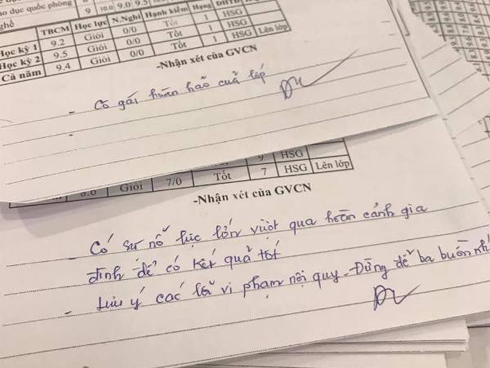 dục quốc phòng 9 10.0 9.0 9.5
nghề
TBCM Học lực N.Nghỉ Hạnh kiểm Hạng
Học kỳ 1 9.2 Giỏi 0/0 Tốt 1 HSG
Học kỳ 2 9.5 Giỏi 0/0 Tốt 1 HSG
Cả năm 9.4 Giỏi 0/0 Tốt 1 HSG Lên lớp
-Nhận xét của GVCN
- Cô gái hoàn hảo của lớp
9 HSG
Giỏi 7/0 Tốt 7 HSG Lên lớp
-Nhận xét của GVCN
- Có sự nỗ lực lớn vượt qua hoàn cảnh gia
đình để có kết quả tốt
- Lưu ý các lỗi vi phạm nội quy. Đừng để ba buồn